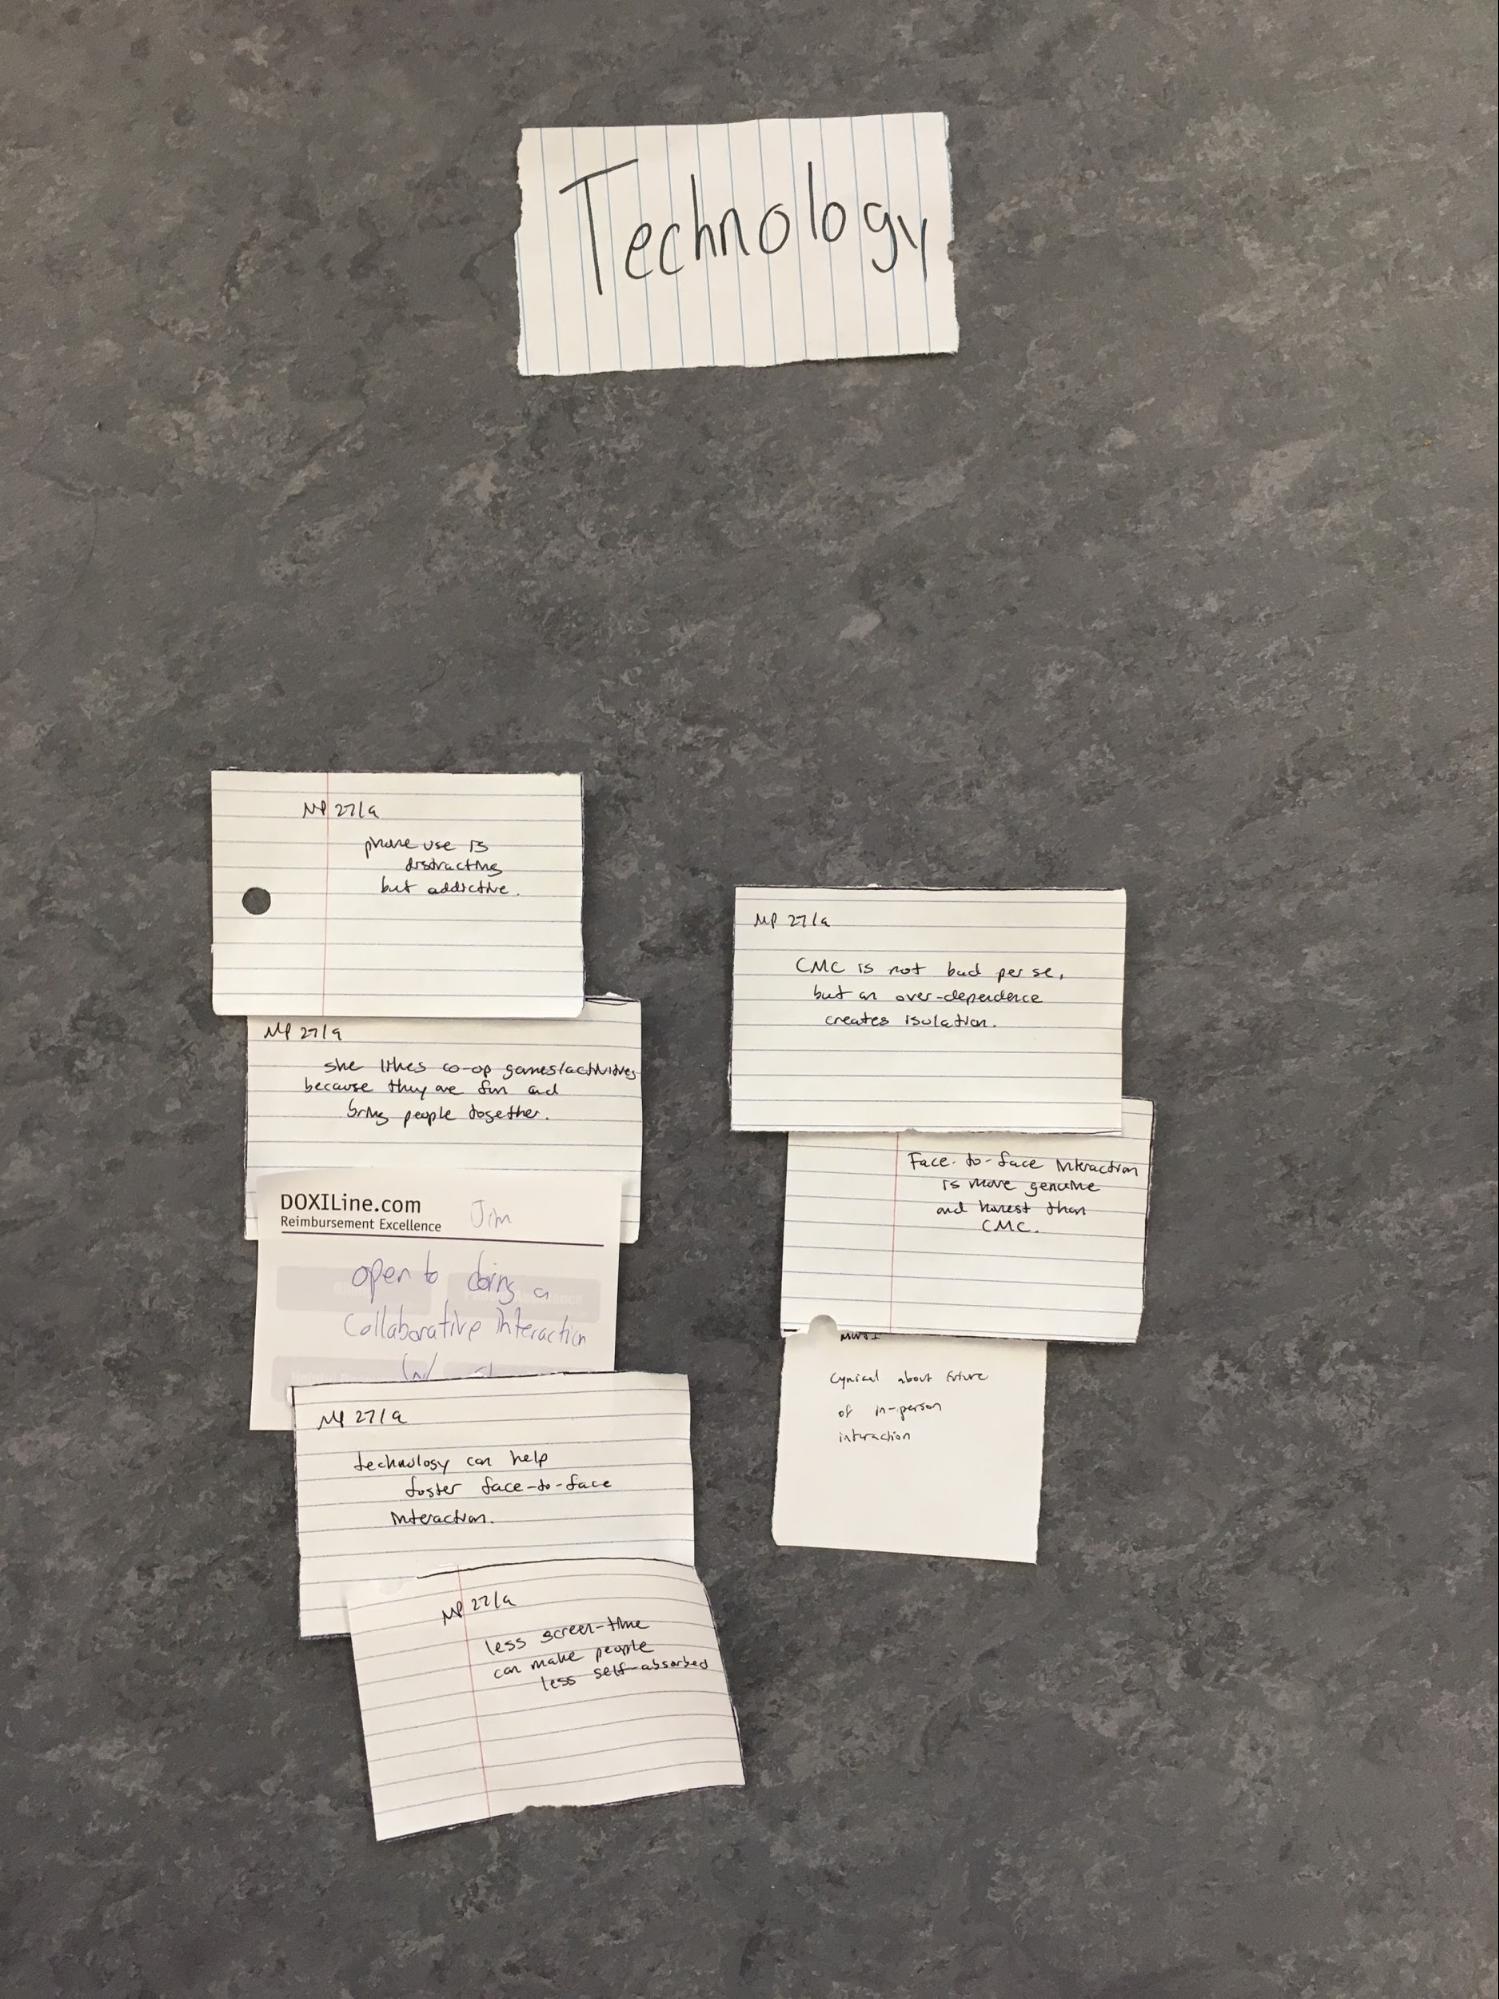 Technology
NP 27/9
phone use is
distracting
but addictive.
NP 27/9
she likes co-op games/activities
because they are fun and
bring people together.
DOXILine.com
Jim
Reimbursement Excellence
open to doing a
Collaborative Interaction
w/
NP 27/9
technology can help
foster face-to-face
interaction.
NP 27/9
less screen-time
can make people
less self-absorbed
NP 27/9
CMC is not bad per se,
but an over-dependence
creates isolation.
Face-to-face interaction
is more genuine
and honest than
CMC.
Cynical about future
of in-person
interaction